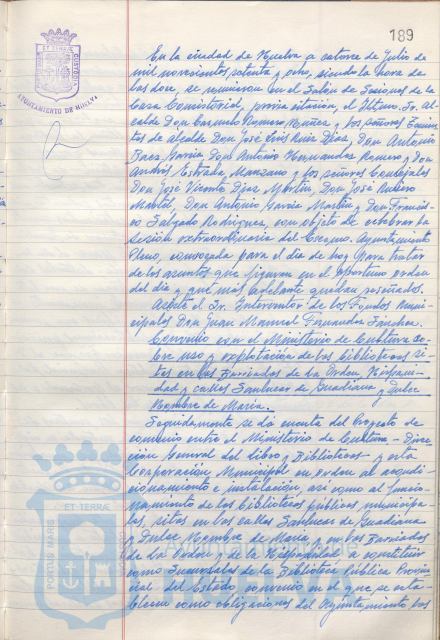 189
AYUNTAMIENTO DE HUELVA
En la ciudad de Huelva a catorce de Julio de
mil novecientos setenta y ocho, siendo la hora de
las doce, se reunieron en el Salón de Sesiones de la
Casa Consistorial, previa citación, el Iltmo. Sr. Al-
calde Don Carmelo Romero Núñez y los señores Tenien-
tes de alcalde Don José Luis Ruiz Díaz, Don Antonio
Baez García, Don Antonio Hernández Romero y Don
Andrés Estrada Manzano y los señores Concejales
Don José Vicente Díaz Martín, Don José
Martel, Don Antonio García Martín y Don Francis-
co Salgado Rodríguez, con objeto de celebrar la
sesión extraordinaria del Excmo. Ayuntamiento
Pleno, convocada para el día de hoy para tratar
de los asuntos que figuran en el oportuno orden
del día y que más adelante quedan reseñados.
Asiste el Sr. Interventor de los Fondos Muni-
cipales Don Juan Manuel Fernández Sánchez.
Convenio con el Ministerio de Cultura so-
bre uso y explotación de las bibliotecas si-
tas en las Barriadas de la Orden, Hispani-
dad y calles Sanlucar de Guadiana y Dulce
Nombre de Maria.
Seguidamente se dá cuenta del Proyecto de
convenio entre el Ministerio de Cultura - Direc-
ción General del Libro y Bibliotecas - y esta
Corporación Municipal en orden al acondi-
cionamiento e instalación, así como al funcio-
namiento de las bibliotecas públicas municipa-
les, sitas en las calles Sanlucar de Guadiana
y Dulce Nombre de Maria y en las Barriadas
de La Orden y de la Hispanidad a constituir
como Sucursales de la Biblioteca Pública Provin-
cial del Estado, convenio en el que se esta-
blecen como obligaciones del Ayuntamiento las
PORTUS MARIS
ET TERRÆ